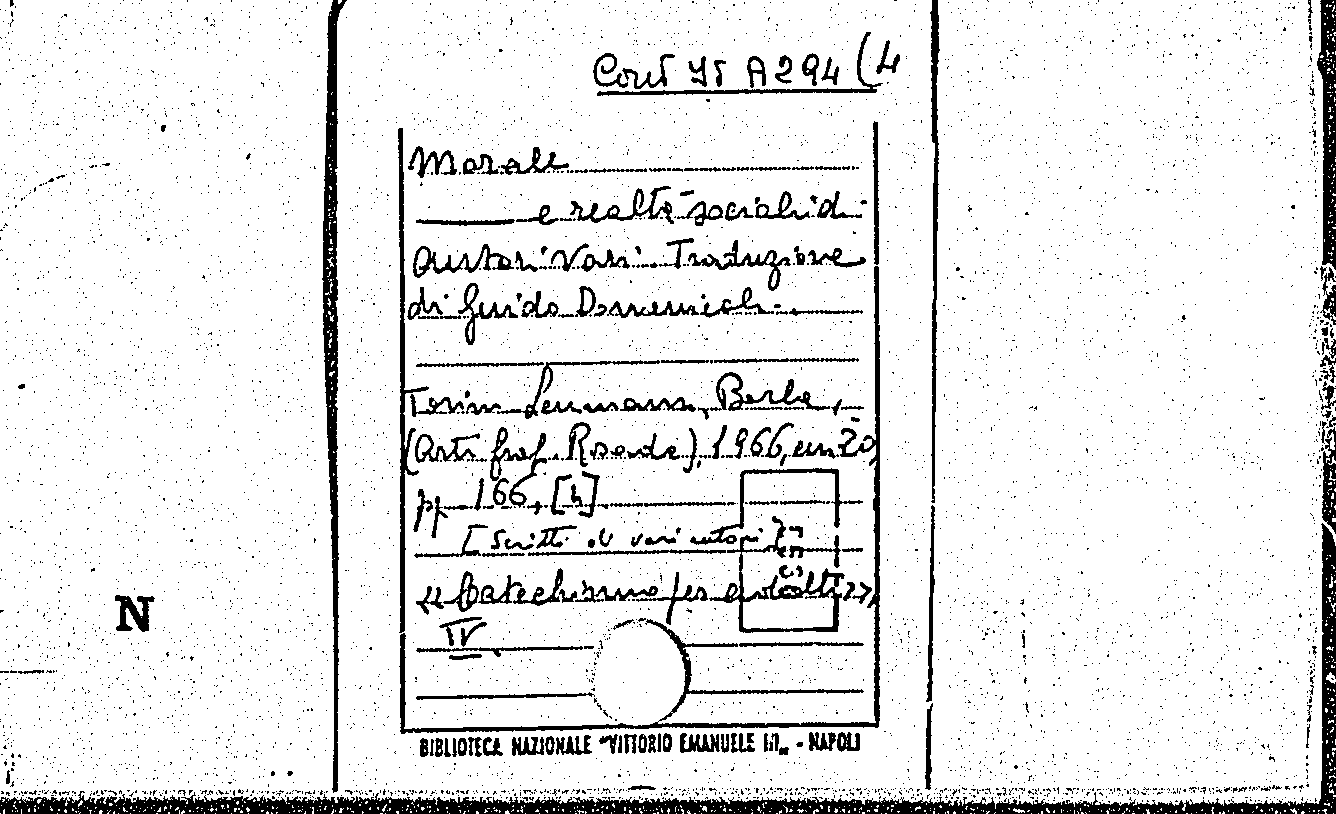 Cons It A 294 (4
Morale
e realtà sociali di
Autori Vari. Traduzione
di Guido Domenicali.
Torino-Leumann, Berla,
(Arti graf. Rosada), 1966, cm 20,
pp. 166, [4]
[Scritti di vari autori]
« Catechismo per adulti »,
IV.
N
BIBLIOTECA NAZIONALE "VITTORIO EMANUELE III„ - NAPOLI